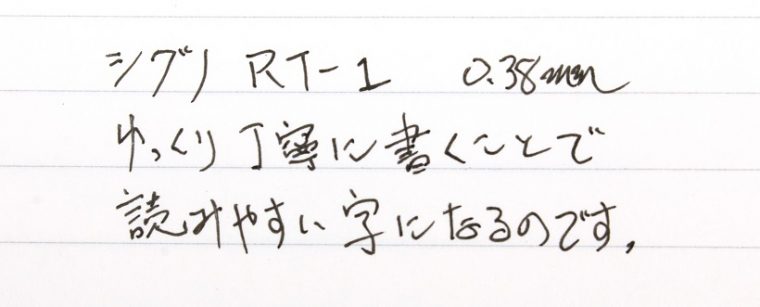 シグノ RT-1 0.38mm
ゆっくり丁寧に書くことで
読みやすい字になるのです。